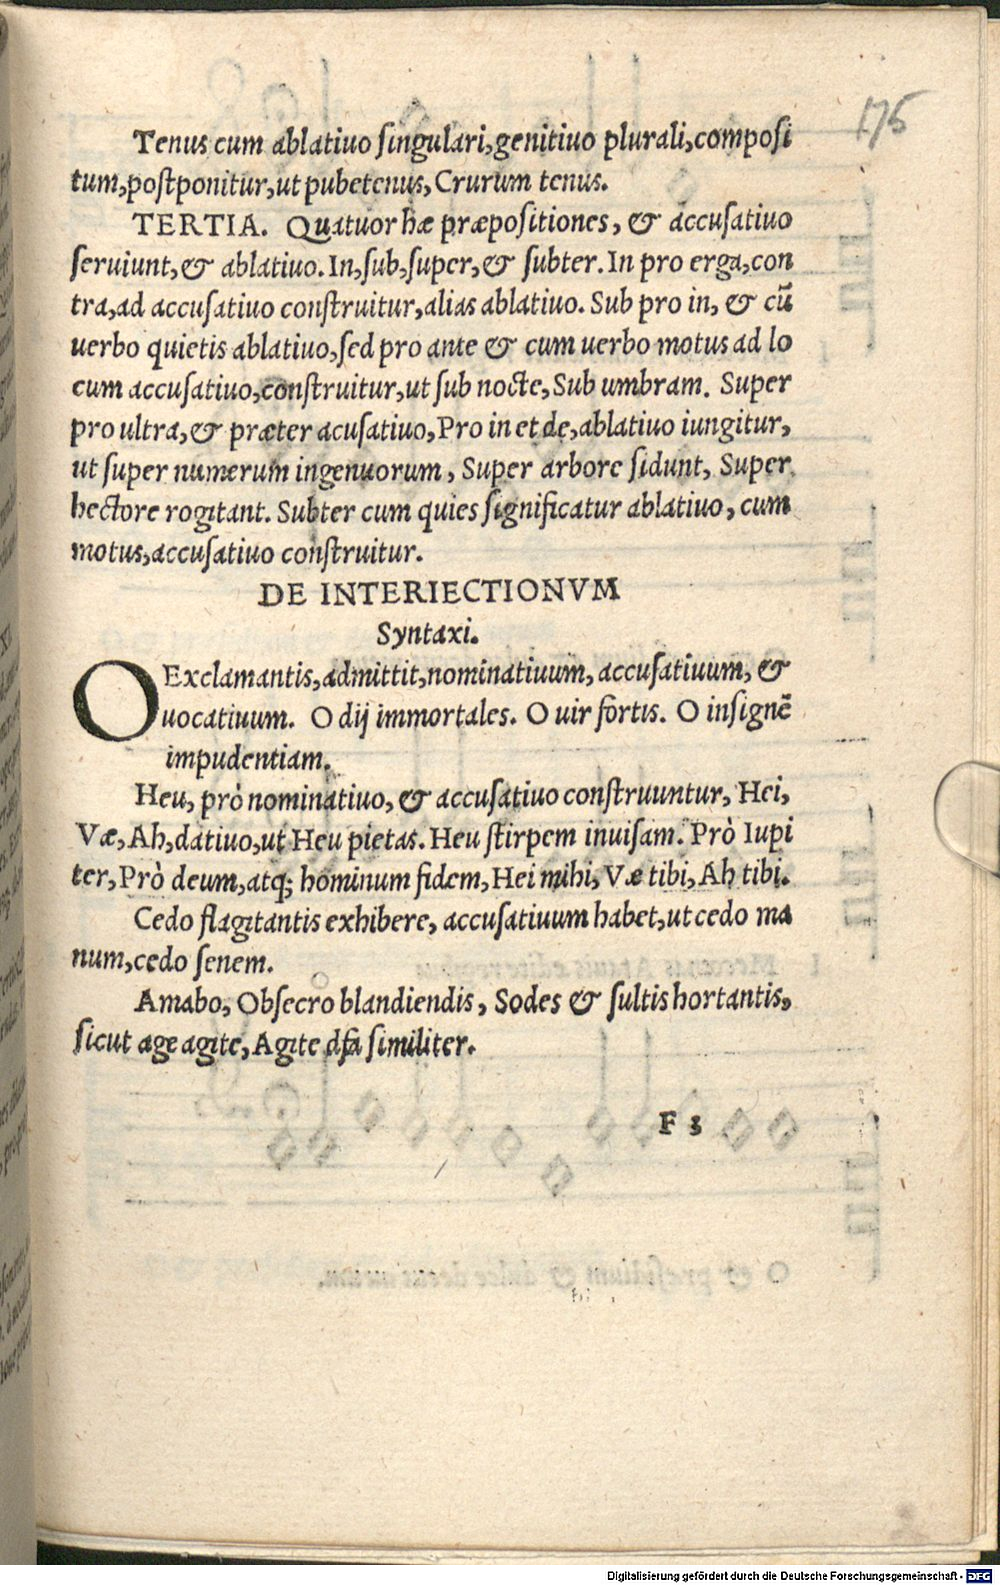 175
Tenus cum ablatiuo singulari,genitiuo plurali,composi
tum,postponitur,ut pubetenus,Crurum tenus.
TERTIA. Quatuor hæ præpositiones, & accusatiuo
seruiunt,& ablatiuo.In,sub,super,& subter.In pro erga,con
tra,ad accusatiuo construitur,alias ablatiuo.Sub pro in, & cū
uerbo quietis ablatiuo,sed pro ante & cum uerbo motus ad lo
cum accusatiuo,construitur,ut sub nocte,Sub umbram. Super
pro ultra,& præter acusatiuo,Pro in et de,ablatiuo iungitur,
ut super numerum ingenuorum, Super arbore sidunt, Super
hectore rogitant. Subter cum quies significatur ablatiuo, cum
motus,accusatiuo construitur.
DE INTERIECTIONVM
Syntaxi.
O Exclamantis,admittit,nominatiuum, accusatiuum, &
uocatiuum. O dij immortales. O uir fortis. O insignē
impudentiam.
Heu, prò nominatiuo, & accusatiuo construuntur, Hei,
Væ,Ah,datiuo,ut Heu pietas. Heu stirpem inuisam. Prò Iupi
ter,Prò deum,atq; hominum fidem,Hei mihi,Væ tibi,Ah tibi.
Cedo flagitantis exhibere, accusatiuum habet,ut cedo ma
num,cedo senem.
Amabo, Obsecro blandiendis, Sodes & sultis hortantis,
sicut age agite, Agite similiter.
F 3
Digitalisierung gefördert durch die Deutsche Forschungsgemeinschaft - DFG